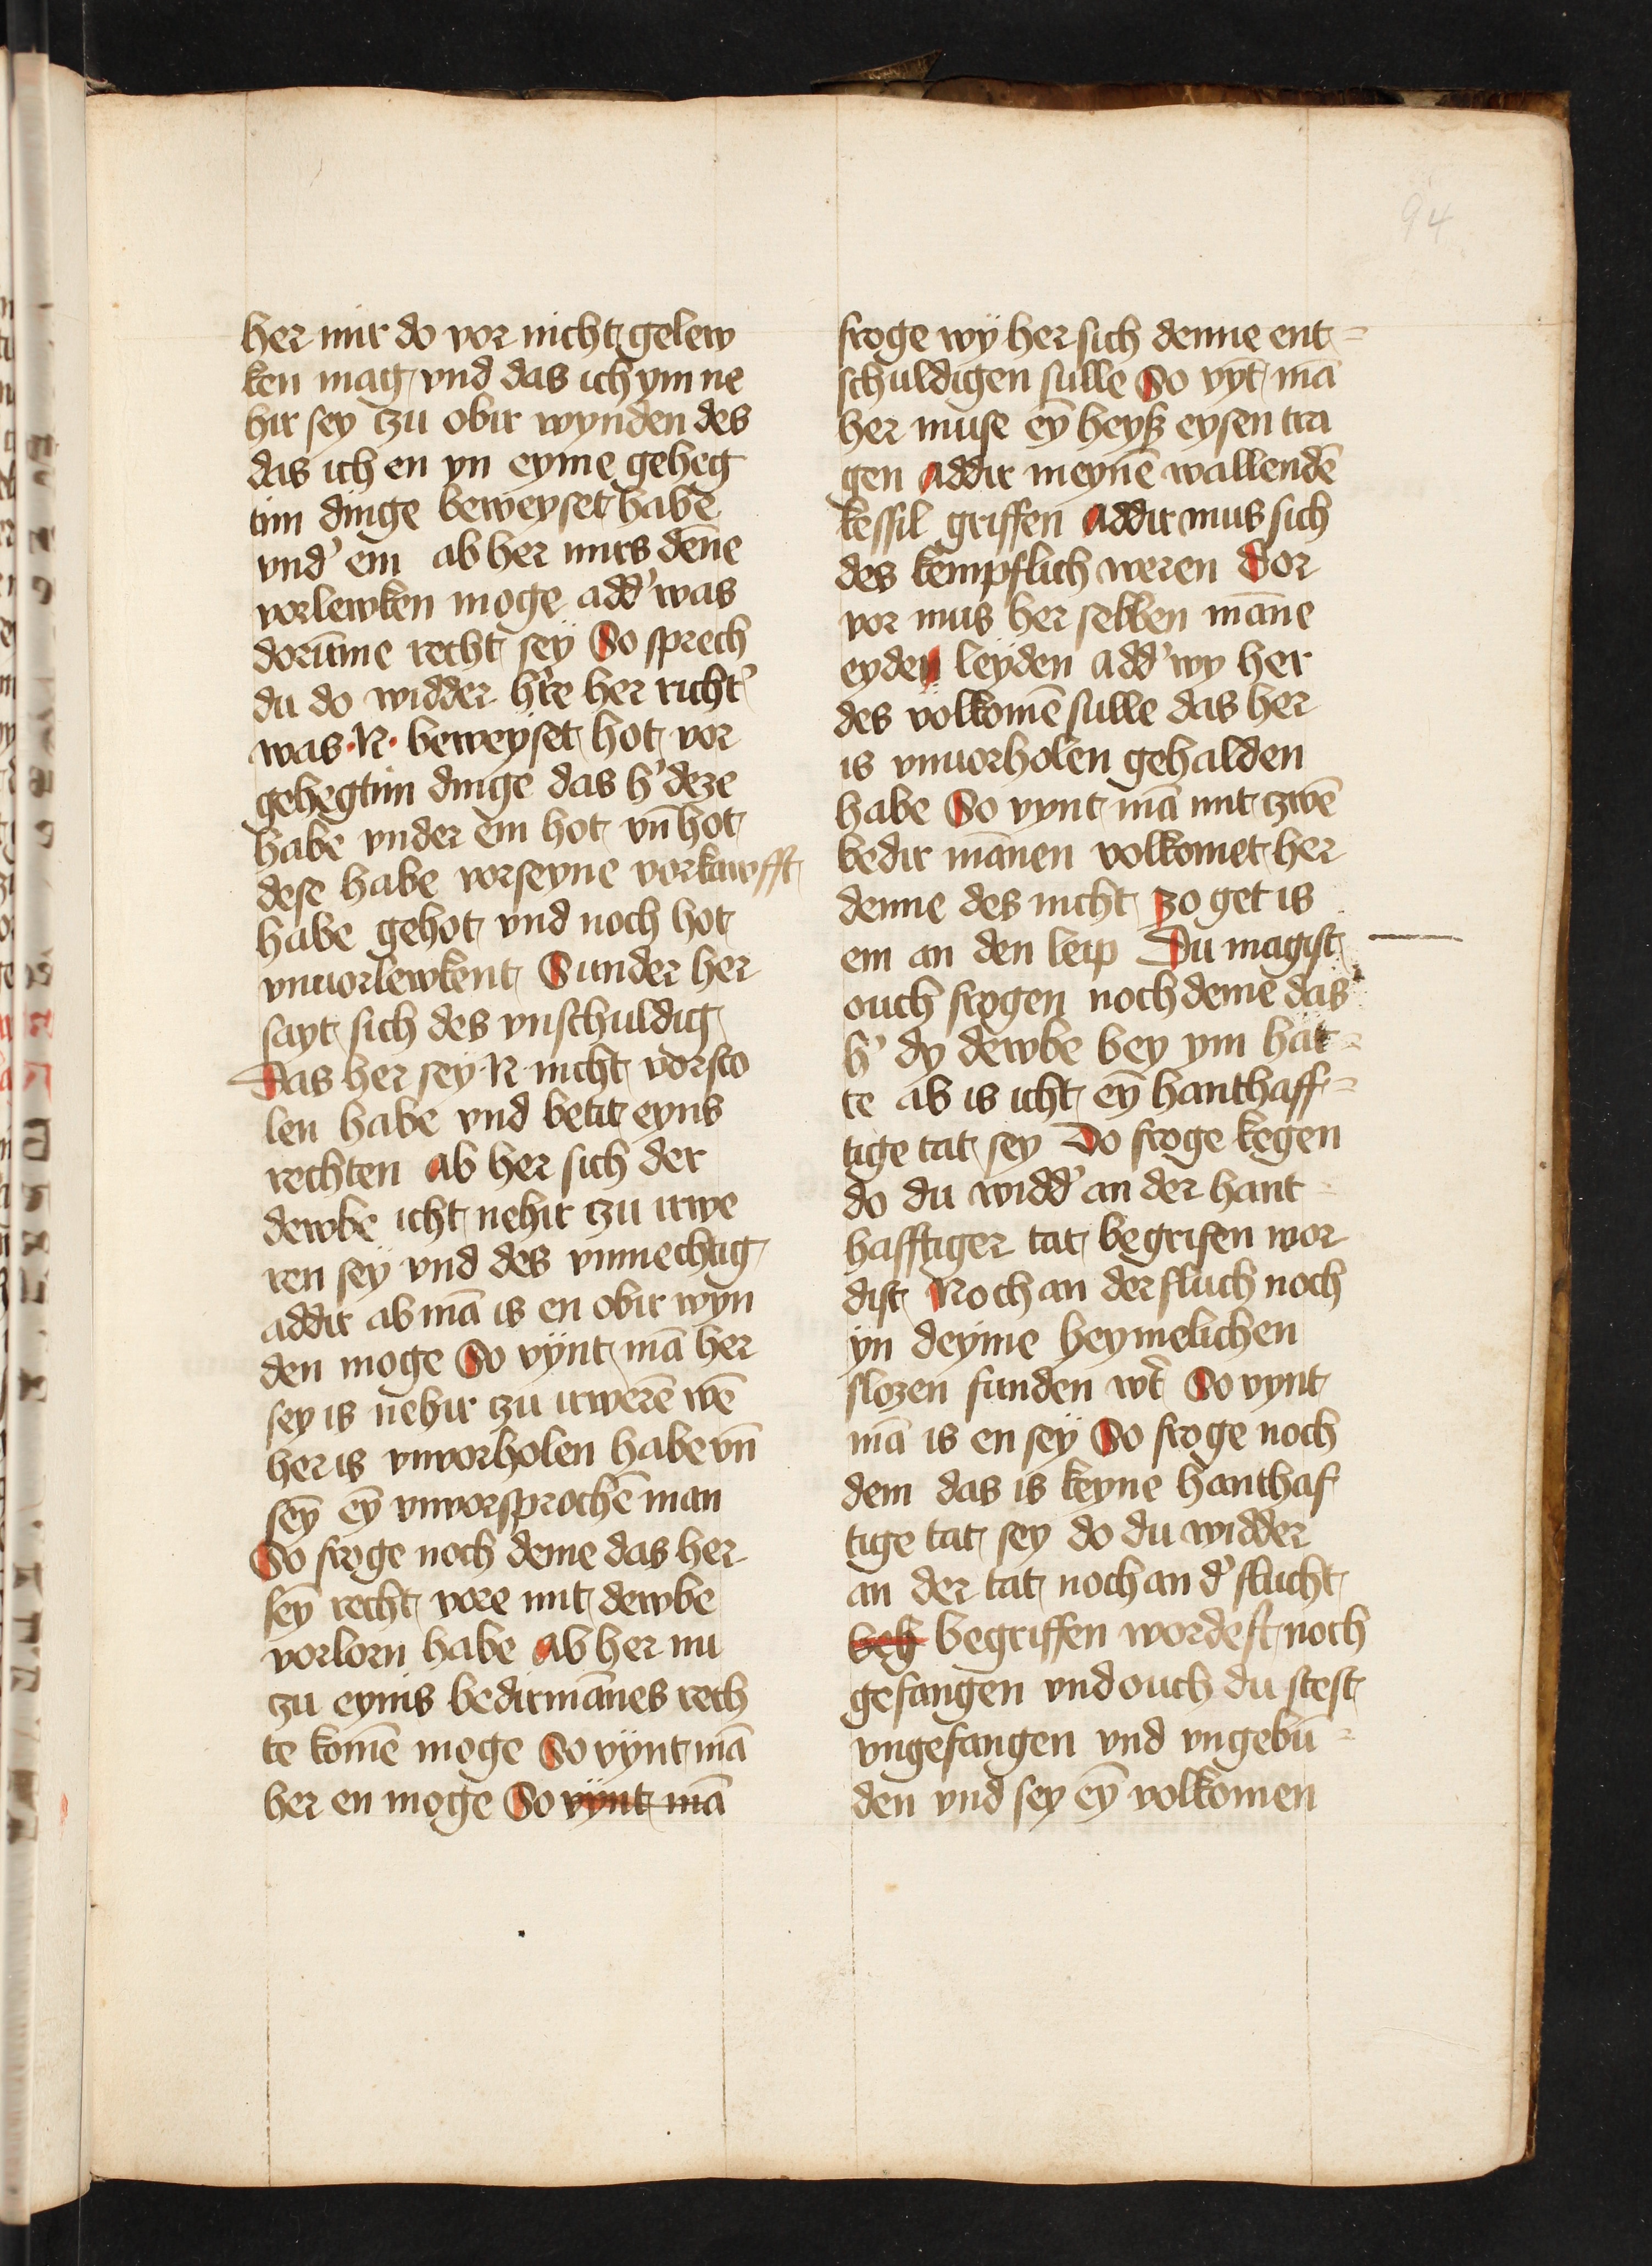 94
her mir do vor nicht gelew
ken mag vnd das ich ym ne
hir sey tzu obir wynden des
das ich en yn eyme geheg
tim dinge beweyset habe
vnd' em ab her mirs den̄e
vorlewken moge add' was
dorūme recht sey So sprech
du do widder h're her richt'
was ·N· beweyset hot vor
gehegtim dinge das h' deze
habe vnder em hot vn̄ hot
dese habe vorseyne vorkawfft
habe gehot vnd noch hot
vnuorlewkent Sunder her
sayt sich des vnschuldig
Das her sey ·N· nicht vorsto
len habe vnd betit eyns
rechten ab her sich der
dewbe icht nehir tzu irwe
ren sey vnd des vnmechtig
addir ab mā is en obir wyn
den moge So vynt mā her
sey is nehir tzu irwerē wē
her is vnvorholen habe vn̄
sey̅ ey̅ vnvorsprochē man
So froge noch deme das her
sey̅ recht vore mit dewbe
vorlorn habe ab her nu
tzu eynis bedirmānes rech
te komē moge So vynt mā
her en moge So vynt mā
froge wy her sich denne ent=
schuldigen sulle So vyt mā
her muse ey̅ heyß eysen tra
gen addir ineynē wallendē
kessil griffen addir mus sich
des kempflich weren dor
vor mus her selben māne
eyden leyden add' wy her
des volkomē sulle das her
is vnuorholen gehalden
habe So vynt mā mit tzwē
bedir mānen volkomet her
denne des nicht zo get is
em an den leip Du magist
ouch frogen noch deme das
h' dy dewbe bey ym hat=
te ab is icht ey̅ hanthaff=
tige tat sey Do froge kegen
do du widd' an der hant
hafftiger tat begrifen wor
dist Noch an der fluch noch
yn deyme heymelichen
slozen funden w't So vynt
mā is en sey So froge noch
dem das is keyne hanthaf
tige tat sey do du widder
an der tat noch an d' flucht
beh begriffen wordest noch
gefangen vnd ouch du stest
vngefangen vnd vngebū=
den vnd sey ey̅ volkomen